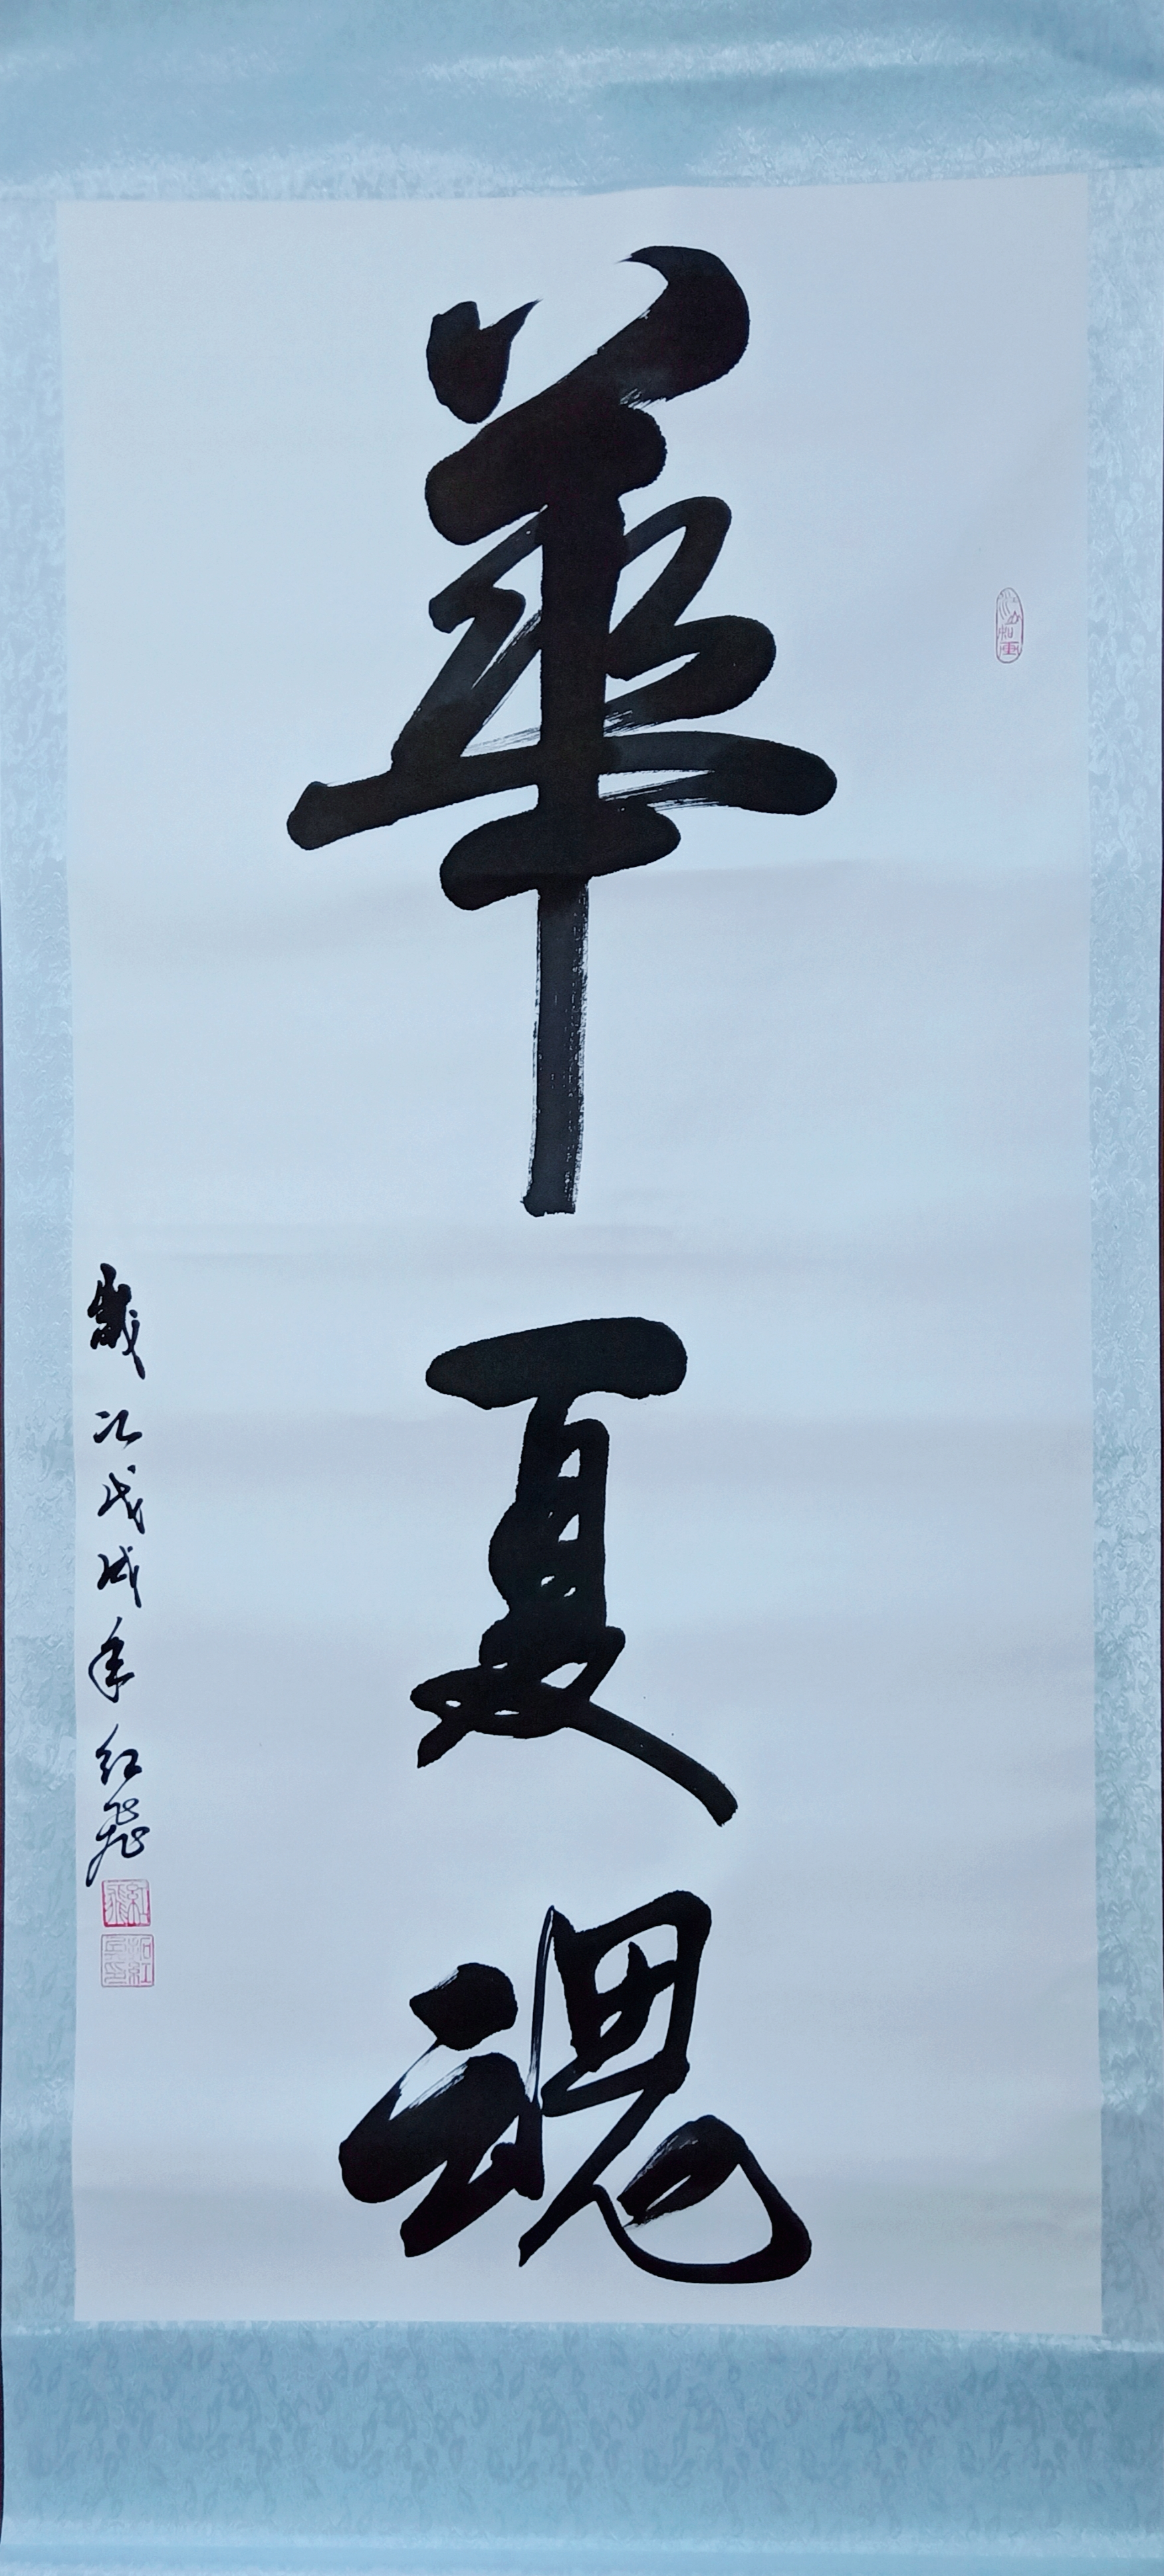 華夏魂
歲次戊戌年紅飛